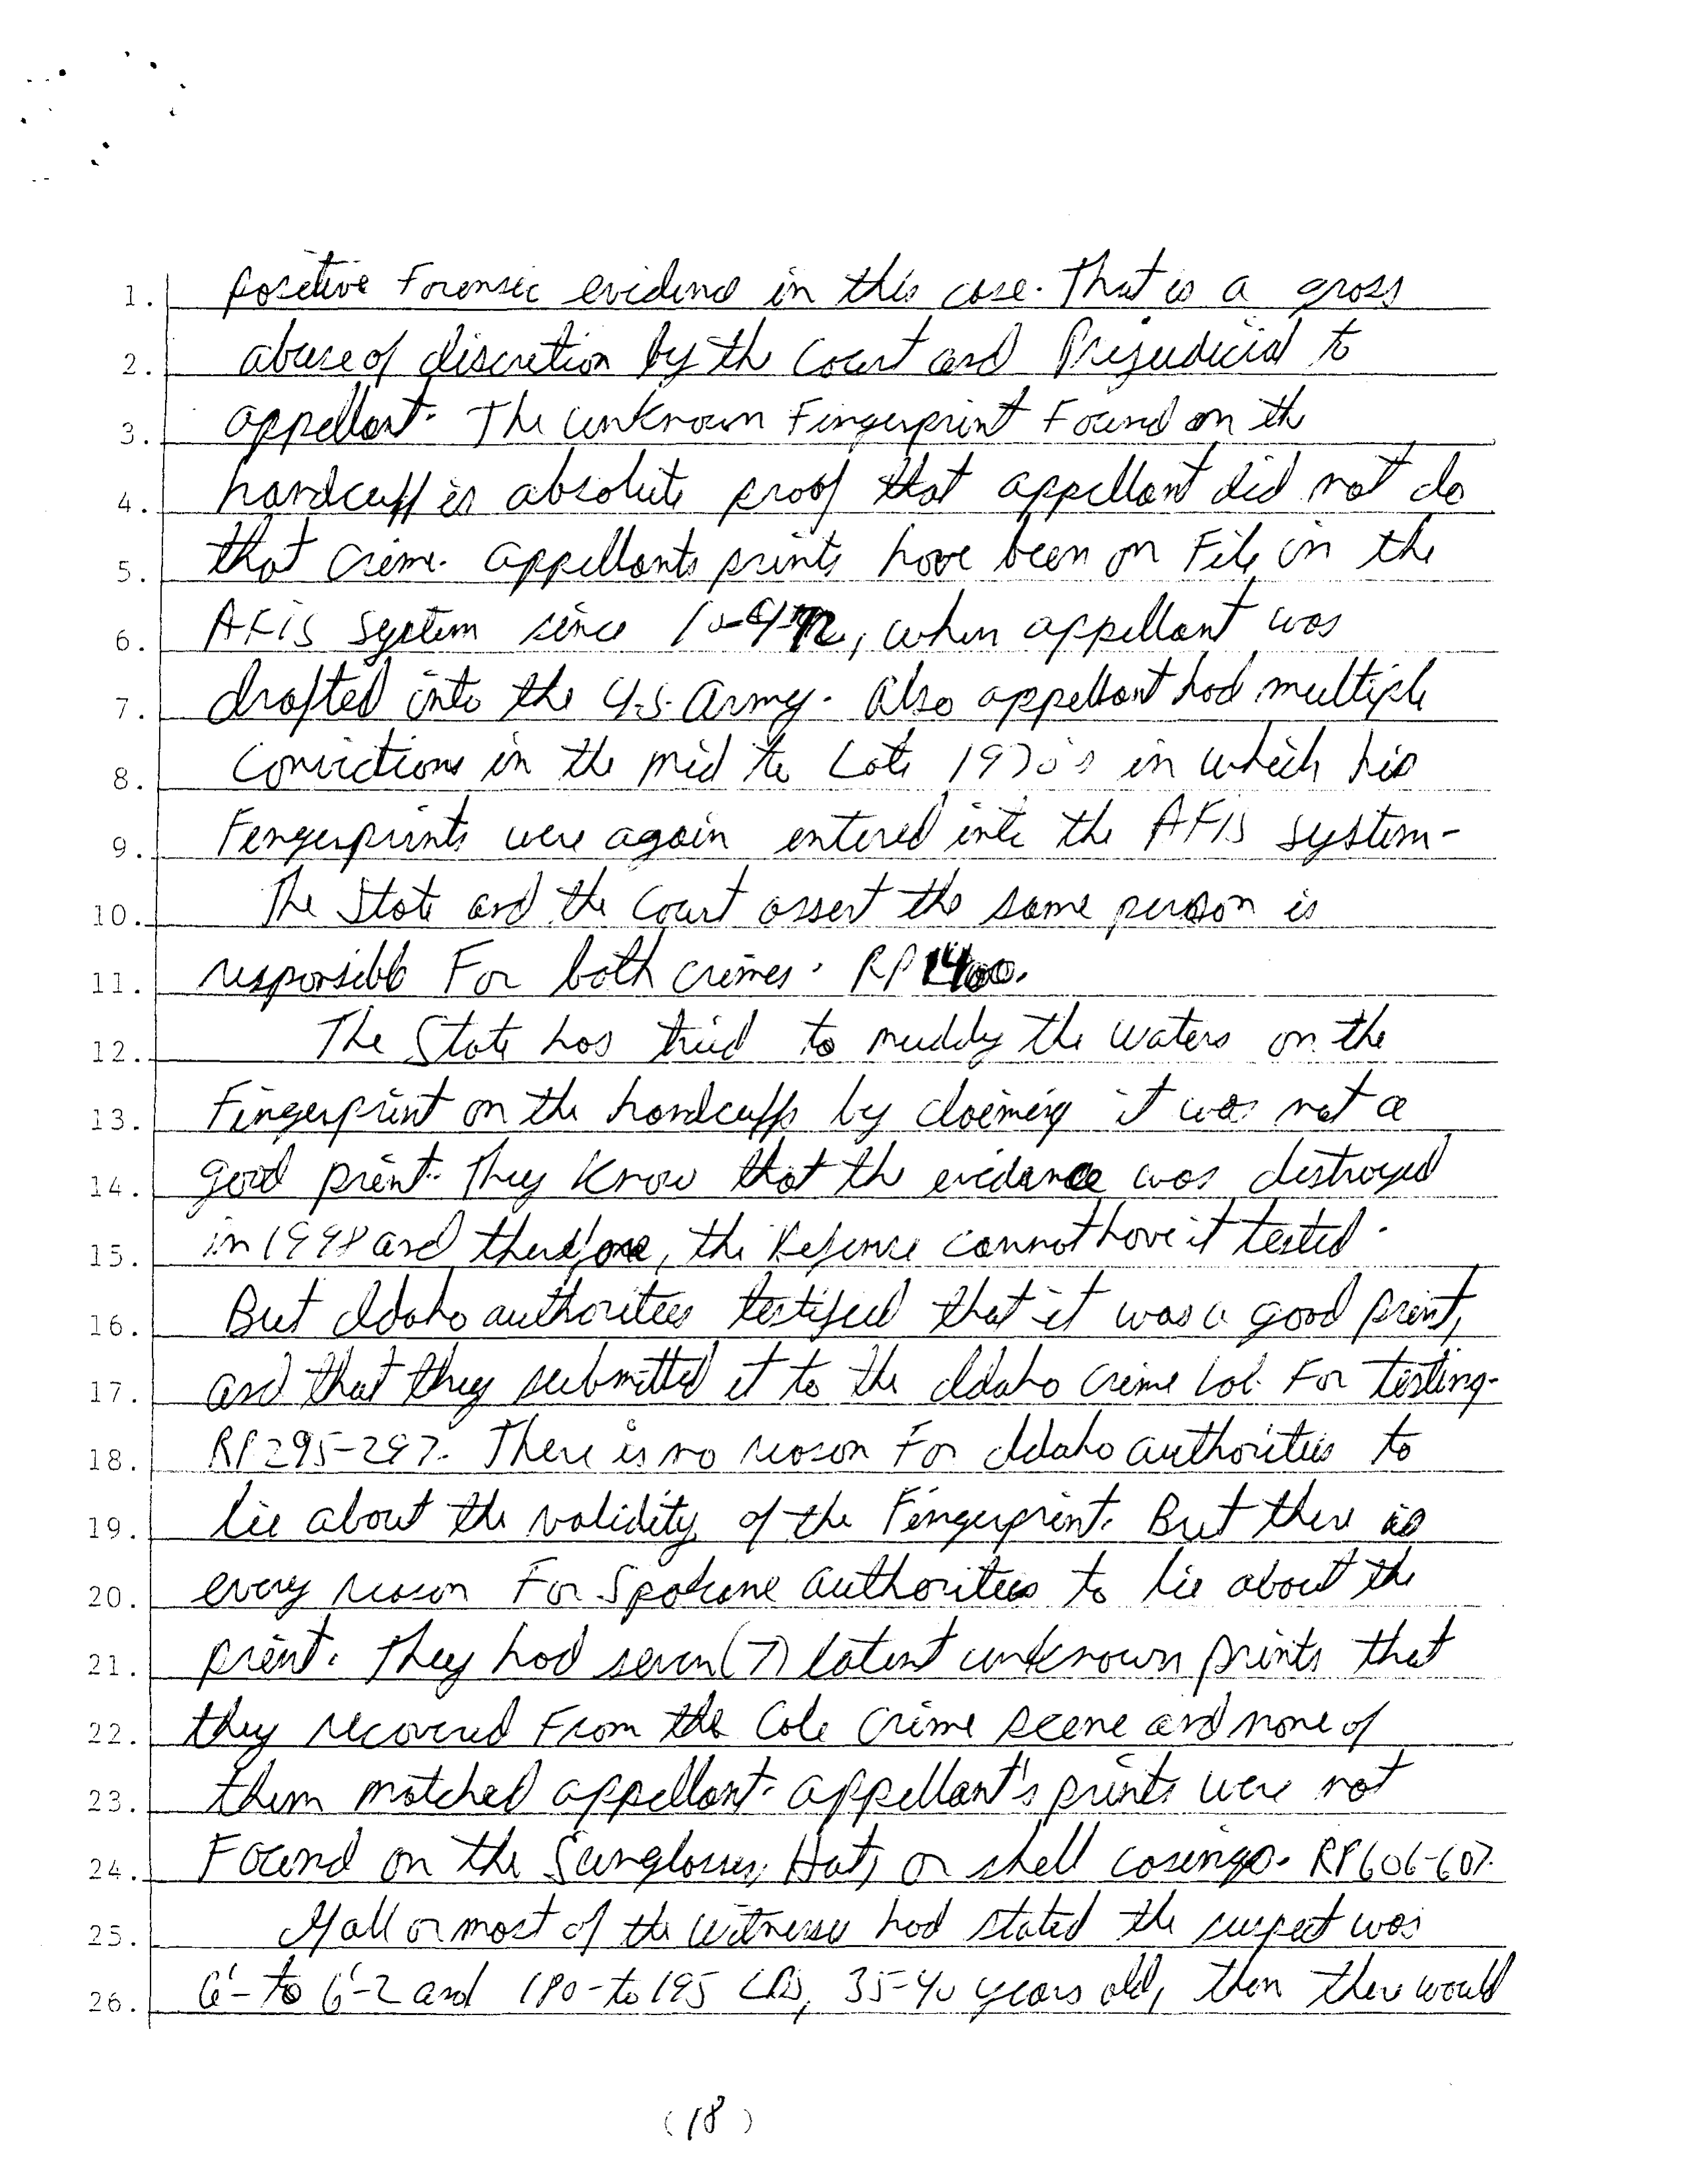 1. positive Forensic evidence in this case. That is a gross
2. abuse of discretion by the Court and Prejudicial to
3. appellant. The unknown Fingerprint Found on the
4. handcuff is absolute proof that appellant did not do
5. that crime. appellants prints have been on File in the
6. AFIS system since , when appellant was
7. drafted into the U.S. Army. Also appellant had multiple
8. Convictions in the mid to Late 1970's in which his
9. Fingerprints were again entered into the AFIS system.
10. The State and the Court assert the same person is
11. responsible For both crimes. RP 1400.
12. The State has tried to muddy the waters on the
13. Fingerprint on the handcuffs by claiming it was not a
14. good print. They Know that the evidence was destroyed
15. in 1998 and therefore, the Defense cannot have it tested.
16. But Idaho authorities testified that it was a good print,
17. and that they submitted it to the Idaho Crime Lab For testing.
18. RP 295-297. There is no reason For Idaho authorities to
19. lie about the validity of the Fingerprint. But there is
20. every reason For Spokane authorities to lie about the
21. print. They had seven (7) latent unknown prints that
22. they recovered From the Cole Crime scene and none of
23. them matched appellant. appellant's prints were not
24. Found on the Sunglasses, Hat, or shell casings. RP 606-607.
25. If all or most of the witnesses had stated the suspect was
26. 6'- to 6'-2 and 180-to 195 LBS, 35-40 years old, then there would
(18)